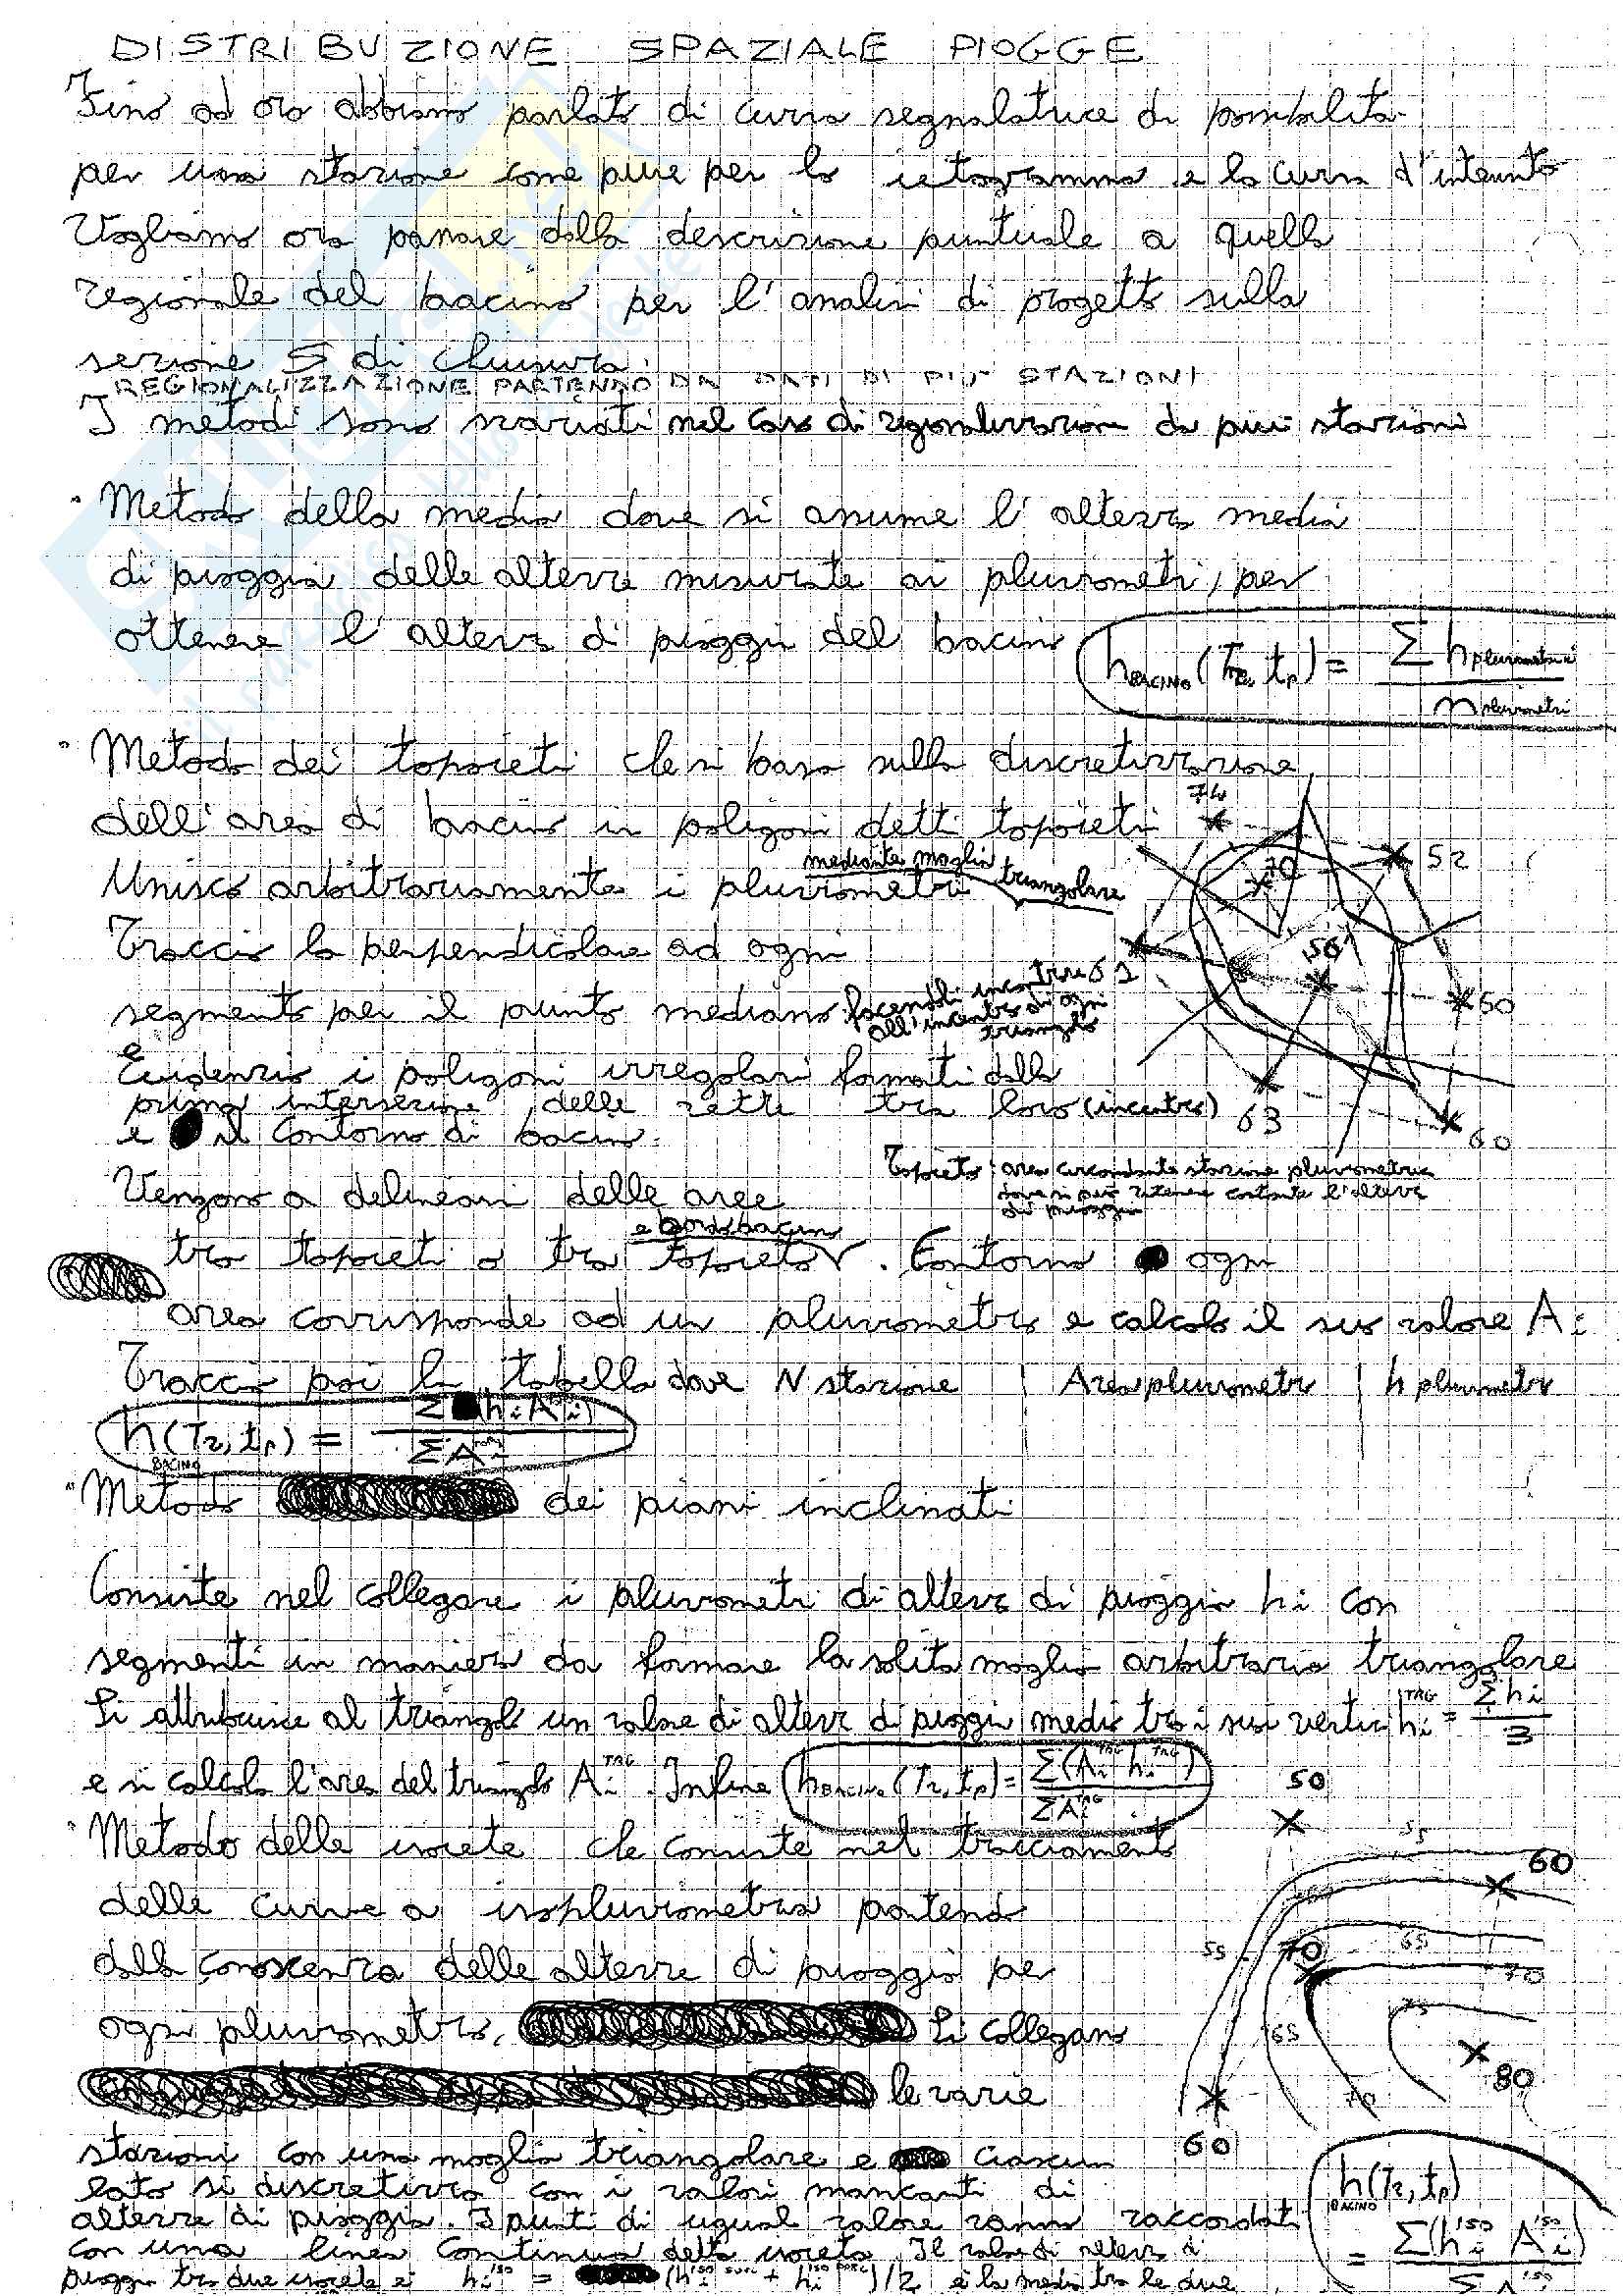 DISTRIBUZIONE SPAZIALE PIOGGE
Fino ad ora abbiamo parlato di curva segnalatrice di possibilità
per una stazione come pure per lo ietogramma e la curva d'intensità
Vogliamo ora passare dalla descrizione puntuale a quella
regionale del bacino per l'analisi di progetto sulla
sezione S di chiusura.
REGIONALIZZAZIONE PARTENDO DA DATI DI PIU' STAZIONI
I metodi sono svariati nel caso di regionalizzazione da più stazioni
• Metodo della media dove si assume l'altezza media
di pioggia delle altezze misurate ai pluviometri, per
ottenere l'altezza di pioggia del bacino
h BACINO (Tr, tp) = Σ h pluviometri / n pluviometri
• Metodo dei topoieti che si basa sulla discretizzazione
dell'area di bacino in poligoni detti topoieti
Unisco arbitrariamente i pluviometri mediante maglia triangolare
Traccio la perpendicolare ad ogni
segmento per il punto mediano facendoli incontrare all'incentro di ogni triangolo
Evidenzio i poligoni irregolari formati dalla
prima intersezione delle rette tra loro (incentro)
e il contorno di bacino.
74
52
70
50
61
60
63
60
Topoieto: area circondante stazione pluviometrica
dove si può ritenere costante l'altezza
di pioggia
Vengono a delinearsi delle aree
tra topoieti o tra topoieto e bordo bacino. Contorno ogni
area corrisponde ad un pluviometro e calcolo il suo valore Ai
Traccio poi la tabella dove N stazione | Area pluviometri | h pluviometri
h BACINO (Tr, tp) = Σ (hi Ai) / Σ Ai
• Metodo dei piani inclinati
Consiste nel collegare i pluviometri di altezza di pioggia hi con
segmenti in maniera da formare la solita maglia arbitraria triangolare
Si attribuisce al triangolo un valore di altezza di pioggia media tra i suoi vertici hi TRG = Σ hi / 3
e si calcola l'area del triangolo Ai TRG. Infine h BACINO (Tr, tp) = Σ (Ai TRG hi TRG) / Σ Ai TRG
• Metodo delle isoiete che consiste nel tracciamento
delle curve a isopluviometria partendo
dalla conoscenza delle altezze di pioggia per
ogni pluviometro. Si collegano
le varie
stazioni con una maglia triangolare e ciascun
lato si discretizza con i valori mancanti di
altezze di pioggia. I punti di ugual valore vanno raccordati
con una linea continua detta isoieta. Il valore di altezza di
pioggia tra due isoiete è hi ISO = (hi ISO SUCC + hi ISO PREC)/2 è la media tra le due
50
55
60
60
55
70
65
70
75
65
80
70
60
h BACINO (Tr, tp)
= Σ (hi ISO Ai ISO) / Σ Ai ISO